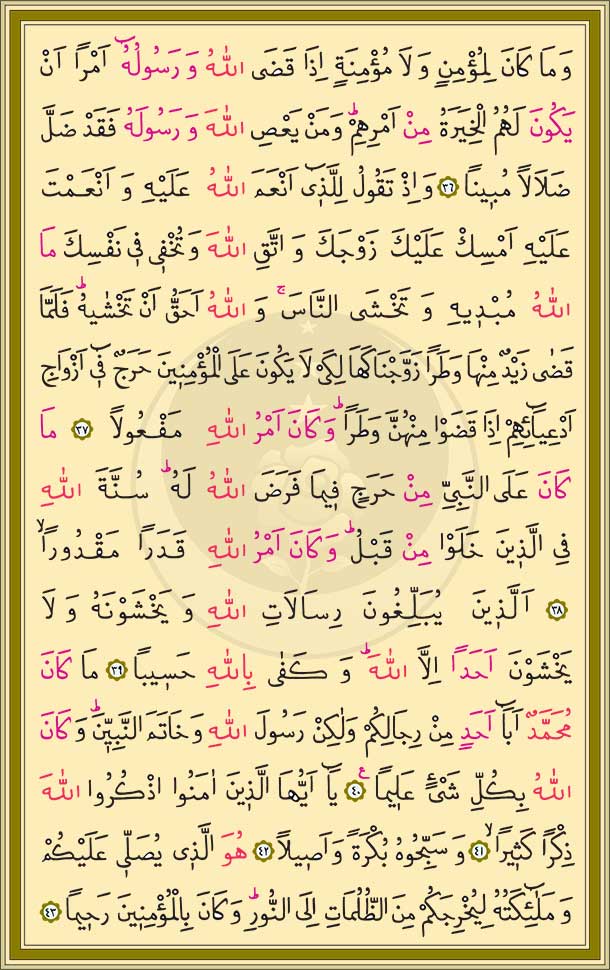 وَمَا كَانَ لِمُؤْمِنٍ وَلَا مُؤْمِنَةٍ اِذَا قَضَى اللّٰهُ وَرَسُولُهُٓ اَمْراً اَنْ
يَكُونَ لَهُمُ الْخِيَرَةُ مِنْ اَمْرِهِمْۜ وَمَنْ يَعْصِ اللّٰهَ وَرَسُولَهُ فَقَدْ ضَلَّ
ضَلَالاً مُب۪يناً ﴿٣٦﴾ وَاِذْ تَقُولُ لِلَّذ۪ٓي اَنْعَمَ اللّٰهُ عَلَيْهِ وَاَنْعَمْتَ
عَلَيْهِ اَمْسِكْ عَلَيْكَ زَوْجَكَ وَاتَّقِ اللّٰهَ وَتُخْف۪ي ف۪ي نَفْسِكَ مَا
اللّٰهُ مُبْد۪يهِ وَتَخْشَى النَّاسَۚ وَاللّٰهُ اَحَقُّ اَنْ تَخْشٰيهُۜ فَلَمَّا
قَضٰى زَيْدٌ مِنْهَا وَطَراً زَوَّجْنَاكَهَا لِكَيْ لَا يَكُونَ عَلَى الْمُؤْمِن۪ينَ حَرَجٌ ف۪ٓي اَزْوَاجِ
اَدْعِيَٓائِهِمْ اِذَا قَضَوْا مِنْهُنَّ وَطَراًۜ وَكَانَ اَمْرُ اللّٰهِ مَفْعُولاً ﴿٣٧﴾ مَا
كَانَ عَلَى النَّبِيِّ مِنْ حَرَجٍ ف۪يمَا فَرَضَ اللّٰهُ لَهُۜ سُنَّةَ اللّٰهِ
فِي الَّذ۪ينَ خَلَوْا مِنْ قَبْلُۜ وَكَانَ اَمْرُ اللّٰهِ قَدَراً مَقْدُوراًۙ
﴿٣٨﴾ اَلَّذ۪ينَ يُبَلِّغُونَ رِسَالَاتِ اللّٰهِ وَيَخْشَوْنَهُ وَلَا
يَخْشَوْنَ اَحَداً اِلَّا اللّٰهَۜ وَكَفٰى بِاللّٰهِ حَس۪يباً ﴿٣٩﴾ مَا كَانَ
مُحَمَّدٌ اَبَٓا اَحَدٍ مِنْ رِجَالِكُمْ وَلٰكِنْ رَسُولَ اللّٰهِ وَخَاتَمَ النَّبِيّ۪نَۜ وَكَانَ
اللّٰهُ بِكُلِّ شَيْءٍ عَل۪يماًࣖ ﴿٤٠﴾ يَٓا اَيُّهَا الَّذ۪ينَ اٰمَنُوا اذْكُرُوا اللّٰهَ
ذِكْراً كَث۪يراًۙ ﴿٤١﴾ وَسَبِّحُوهُ بُكْرَةً وَاَص۪يلاً ﴿٤٢﴾ هُوَ الَّذ۪ي يُصَلّ۪ي عَلَيْكُمْ
وَمَلٰٓئِكَتُهُ لِيُخْرِجَكُمْ مِنَ الظُّلُمَاتِ اِلَى النُّورِۜ وَكَانَ بِالْمُؤْمِن۪ينَ رَح۪يماً ﴿٤٣﴾